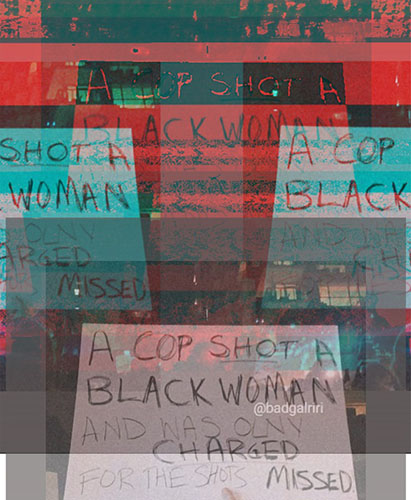 A COP SHOT A
BLACK WOMAN
SHOT A
WOMAN
OLNY
ARGED
MISSED
A COP
BLACK
AND WA
CH
A COP SHOT A
BLACK WOMAN
@badgalriri
AND WAS OLNY
CHARGED
FOR THE SHOTS MISSED